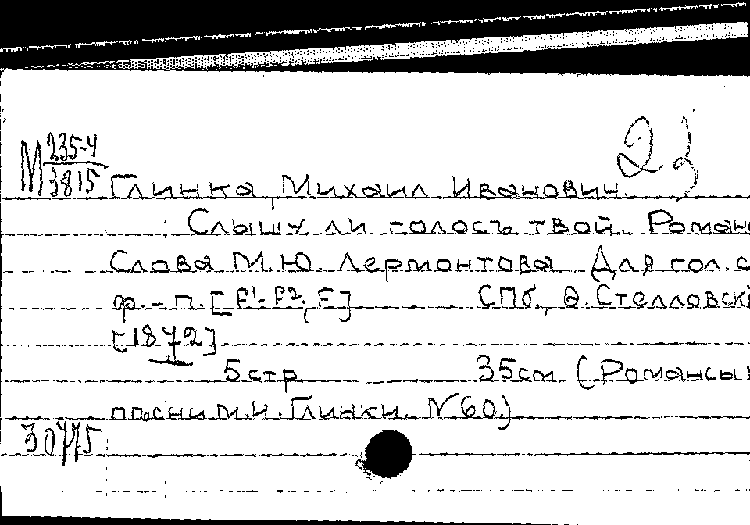 23
М 235-4
3815 Глинка, Михаил Иванович.
Слышу ли голосъ твой. Романс
Слова М.Ю. Лермонтова. Для гол. с
ф.-п. [E¹-F², F] СПб., Ѳ. Стелловскі
[1872].
5 стр 35см (Романсы
пѣсни М.И. Глинки. №60.)
30775